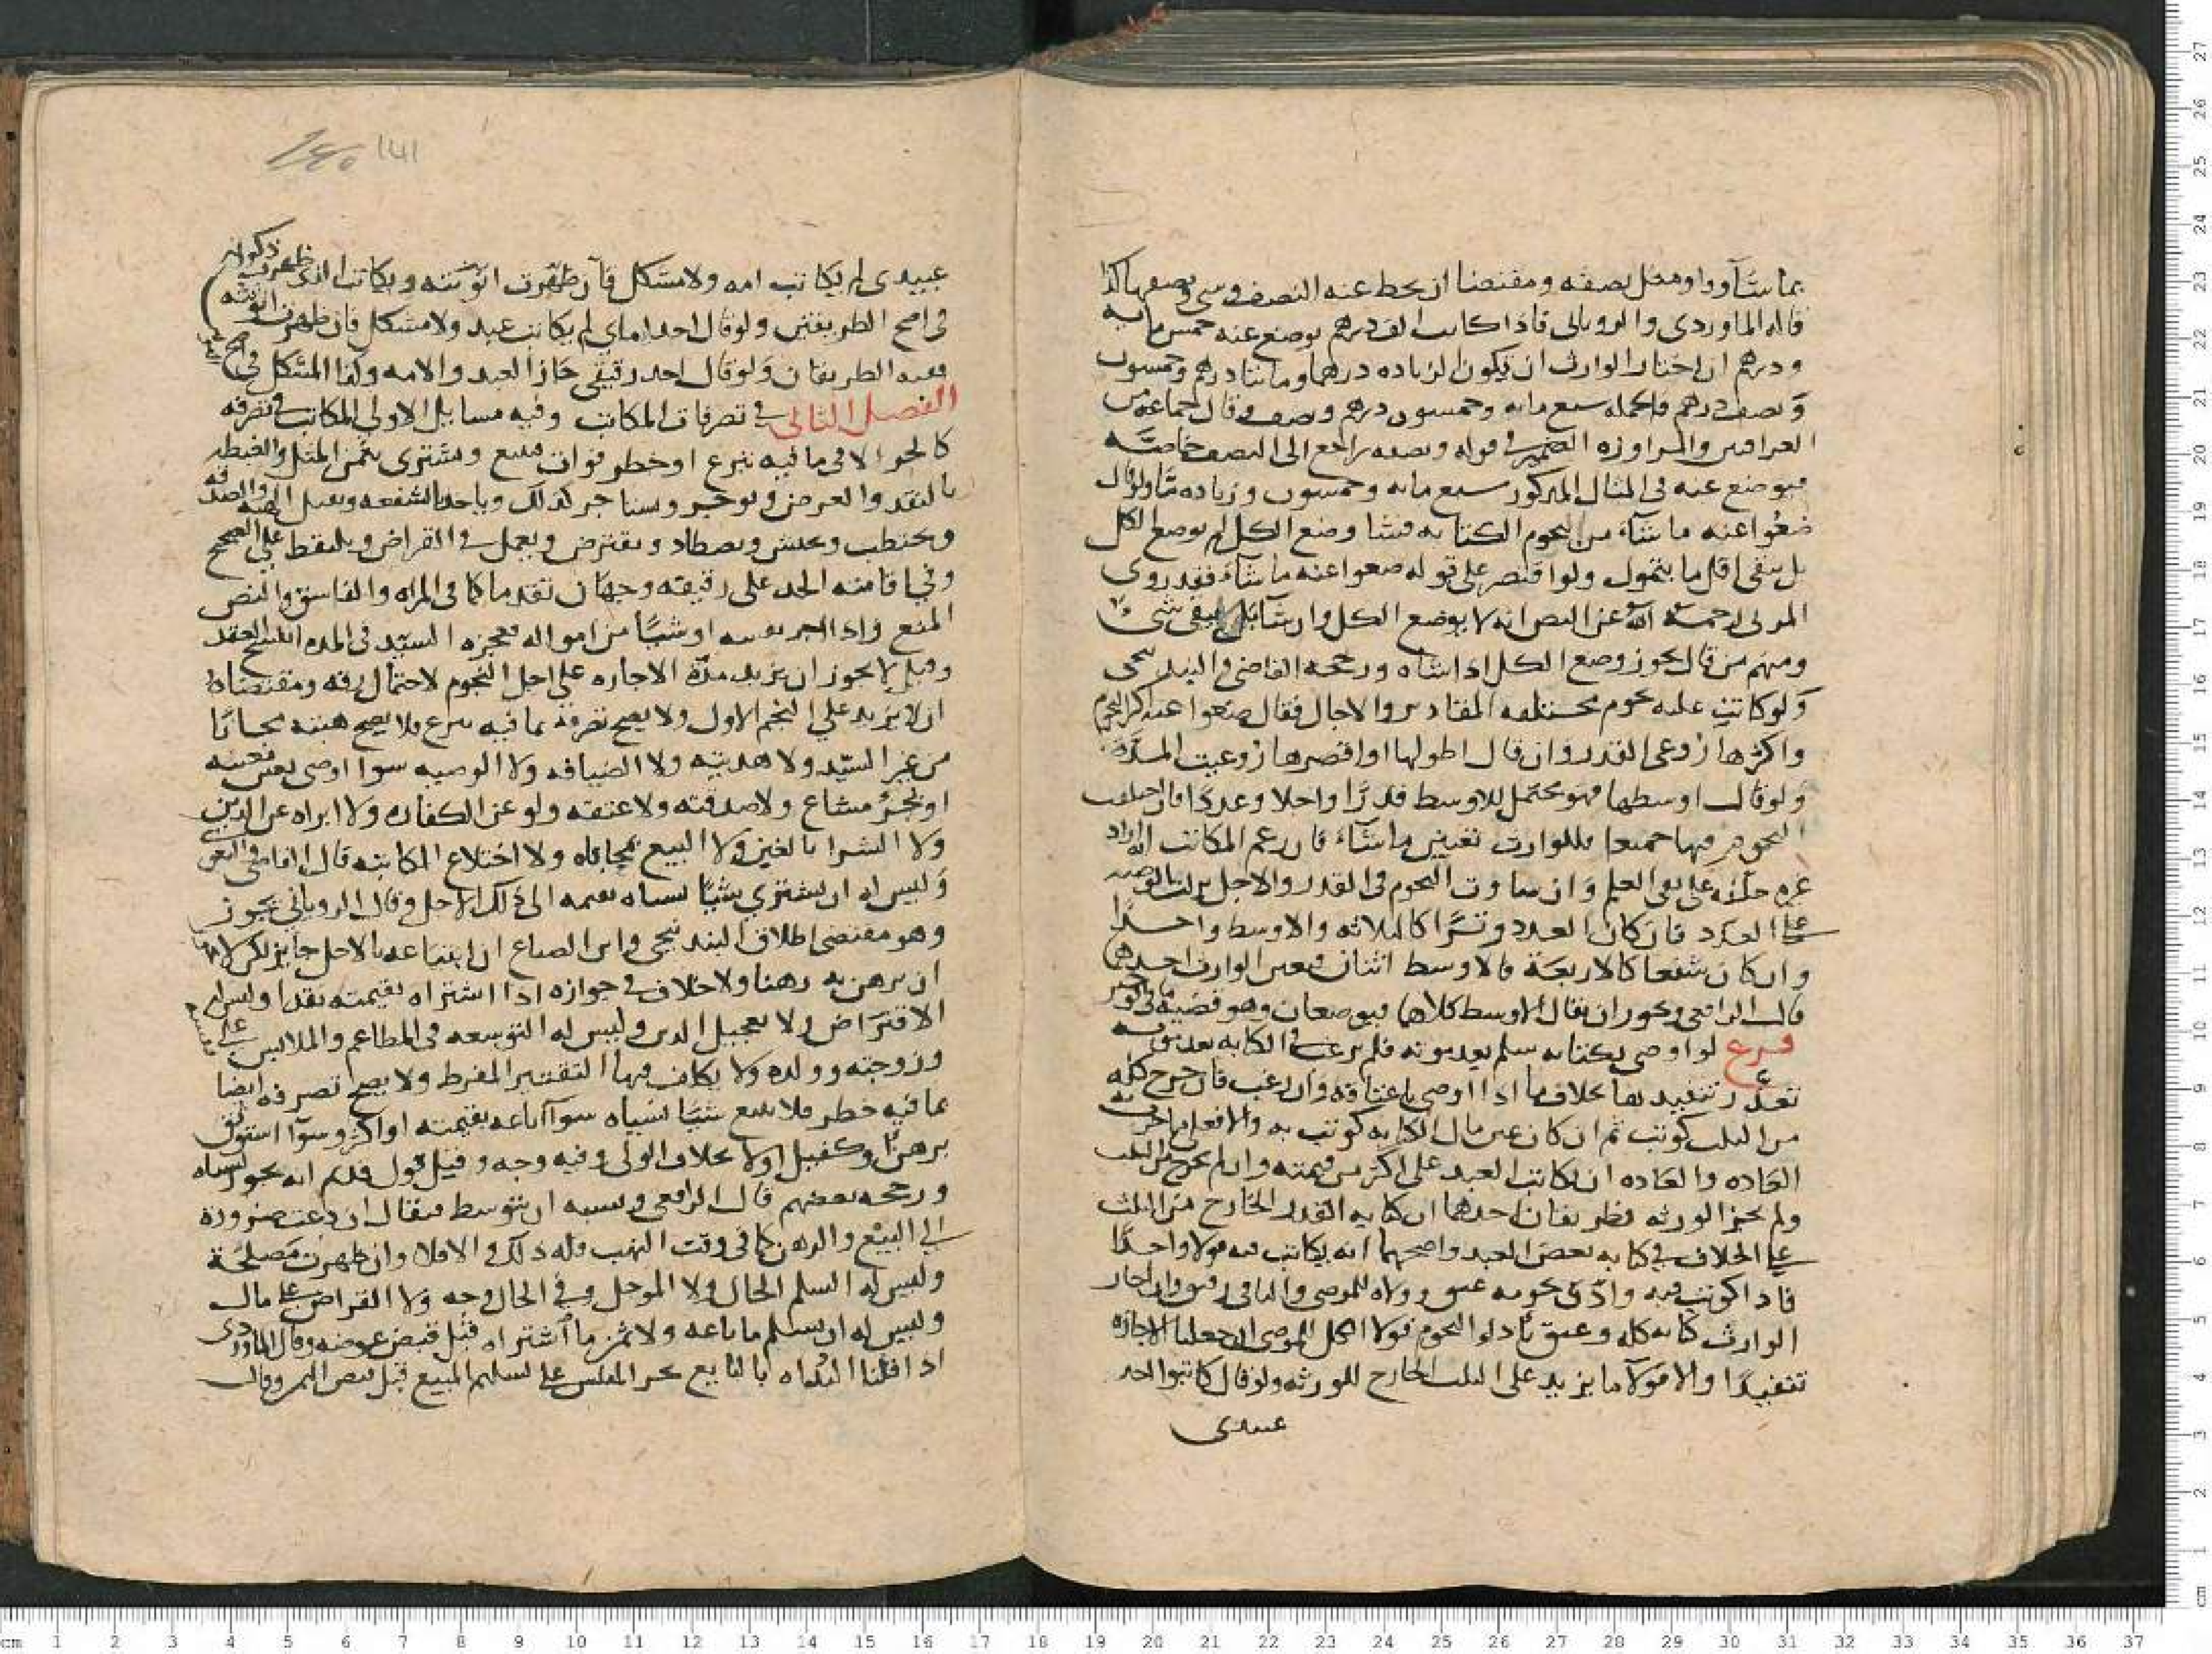 بما شآ وا ومثل نصفه ومقتضا ان يحط عنه النصف وشي ونصفها كذا
قاله الماوردى والرويانى فاذا كانت الف درهم يوضع عنه خمس مايه
ودرهم ان اختار الوارث ان يكون الزياده درهما ومايتا درهم وخمسون
ونصف درهم والجمله سبع مايه وخمسون درهم ونصف وقال جماعه من
العراقيين والمراوزه الضمير فى قوله ونصفه راجع الى النصف خاصة
فيوضع عنه فى المثال المذكور سبع مايه وخمسون وزياده ما ولو قال
ضعوا عنه ما شآء من نجوم الكتابه فشا وضع الكل لم يوضع الكل
بل يبقى اقل ما يتمول ولو اقتصر على قوله ضعوا عنه ما شآء فقد روى
المزنى رحمه الله عن النص انه لا يوضع الكل وان شا بل يبقى شى
ومنهم من قال يجوز وضع الكل اذا شاه ورجحه القاضى والبندنيجى
ولو كاتب عليه نجوم مختلفه المقادير والاجال فقال ضعوا عنه اكبر النجوم
واكثرها روعى القدر وان قال اطولها او اقصرها روعيت المدة
ولو قال اوسطها فهو محتمل للاوسط قدرا واجلا وعددا فان اختلفت
النجوم فيها جميعا فللوارث تعيين ما شآء فان زعم المكاتب انه اراد
غيره حلفه على نفى العلم وان تساوت النجوم فى القدر والاجل
على العدد فان كان العدد وترا كالثلاثه والاوسط واحدا
وان كان شفعا كالاربعة فالاوسط اثنان فيعين الوارث احدهما
قال الرافعى ويجوز ان يقال الاوسط كلاهما فيوضعان وهو قضية ما فى
فرع لو اوصى بكتابه سلم بعد موته فلم يرغب فى الكتابه بعد موته
تعذر تنفيذها بخلاف ما اذا اوصى باعتاقه وان رغب فان خرج كله
من الثلث كوتب ثم ان كان عين مال الكتابه كوتب به والا فعلى ما جرت به
العاده والعاده ان يكاتب العبد على اكثر من قيمته وان لم يخرج من الثلث
ولم يجز الورثه فطريقان احدهما ان كتابه القدر الخارج من الثلث
على الخلاف فى كتابه بعض العبد واصحهما انه يكاتب فيه قولا واحدا
فاذا كوتب فيه وادى نجومه عتق وولاه للموصى والباقى رقيق وان اجاز
الوارث كتابه كله وعتق بادا النجوم فولا الكل للموصى ان جعلنا الاجازه
تنفيذا والا فولا ما يزيد على الثلث الخارج للورثه ولو قال كاتبوا احد
عبيدى
١٤١
عبيدى لم يكاتب امه ولا مشكل فان ظهرت انوثته ويكاتب ان ظهرت ذكورته
فى اصح الطريقين ولو قال احد اماى لم يكاتب عبد ولا مشكل فان ظهرت انوثته
ففيه الطريقان ولو قال احد رقيقى جاز العبد والامه وكذا المشكل فى
الفصل الثانى فى تصرفات المكاتب وفيه مسايل الاولى المكاتب فى تصرفه
كالحر الا فى ما فيه تبرع او خطر فوات فيبيع ويشترى بثمن المثل والغبطه
بالنقد والعرض ويوجر ويستاجر كذلك وياخذ بالشفعه ويقبل الهبه والصدقه
ويحتطب ويحتش ويصطاد ويقترض ويعمل فى القراض ويلتقط على الصحيح
وفى اقامته الحد على رقيقه وجهان تقدما كما فى المراه والفاسق والنص
المنع واذا اجر نفسه او شيئا من امواله فعجزه السيد فى المده انفسخ العقد
وقيل لا يجوز ان يزيد مدة الاجاره على اجل النجوم لاحتمال رقه ومقتضاه
ان لا يزيد على النجم الاول ولا يصح تصرفه بما فيه تبرع فلا يصح هبته مجانا
من غير السيد ولا هديته ولا الضيافه ولا الوصيه سوا اوصى بعين معينه
او بجزء مشاع ولا صدقته ولا عتقه ولو عن الكفاره ولا ابراه عن الدين
ولا الشرا بالغبن ولا البيع بمحاباه ولا اختلاع المكاتبه قال القاضى
وليس له ان يشترى شيئا نسياه بقيمه الى ذلك الاجل وقال الرويانى يجوز
وهو مقتضى اطلاق البندنيجى وابن الصباغ ان ابتياعه بالاجل جايز لكن لا
ان يرهن به رهنا ولا خلاف فى جوازه اذا اشتراه بقيمته نقدا وليس له
الاقتراض ولا تعجيل الدين وليس له التوسعه فى المطاعم والملابس على
وزوجته وولده ولا يكلف فيها التقتير المفرط ولا يصح تصرفه ايضا
بما فيه خطر فلا يبيع شيئا نسياه سوآ باعه بقيمته او اكثر وسوآ استوثق
برهن وكفيل او لا بخلاف الولى وفيه وجه وقيل قول قديم انه يجوز نسياه
ورجحه بعضهم قال الرافعى ويشبه ان يتوسط فيقال ان دعت ضرورة
الى البيع والرهن كما فى وقت النهب فله ذلك والا فلا وان ظهرت مصلحة
وليس له السلم الحال ولا الموجل وفى الحال وجه ولا القراض على مال
وليس له ان يسلم ما باعه ولا ثمن ما اشتراه قبل قبض عوضه وقال الماوردى
اذا قلنا البداه بالبايع يجبر المفلس على تسليم المبيع قبل قبض الثمن وقال